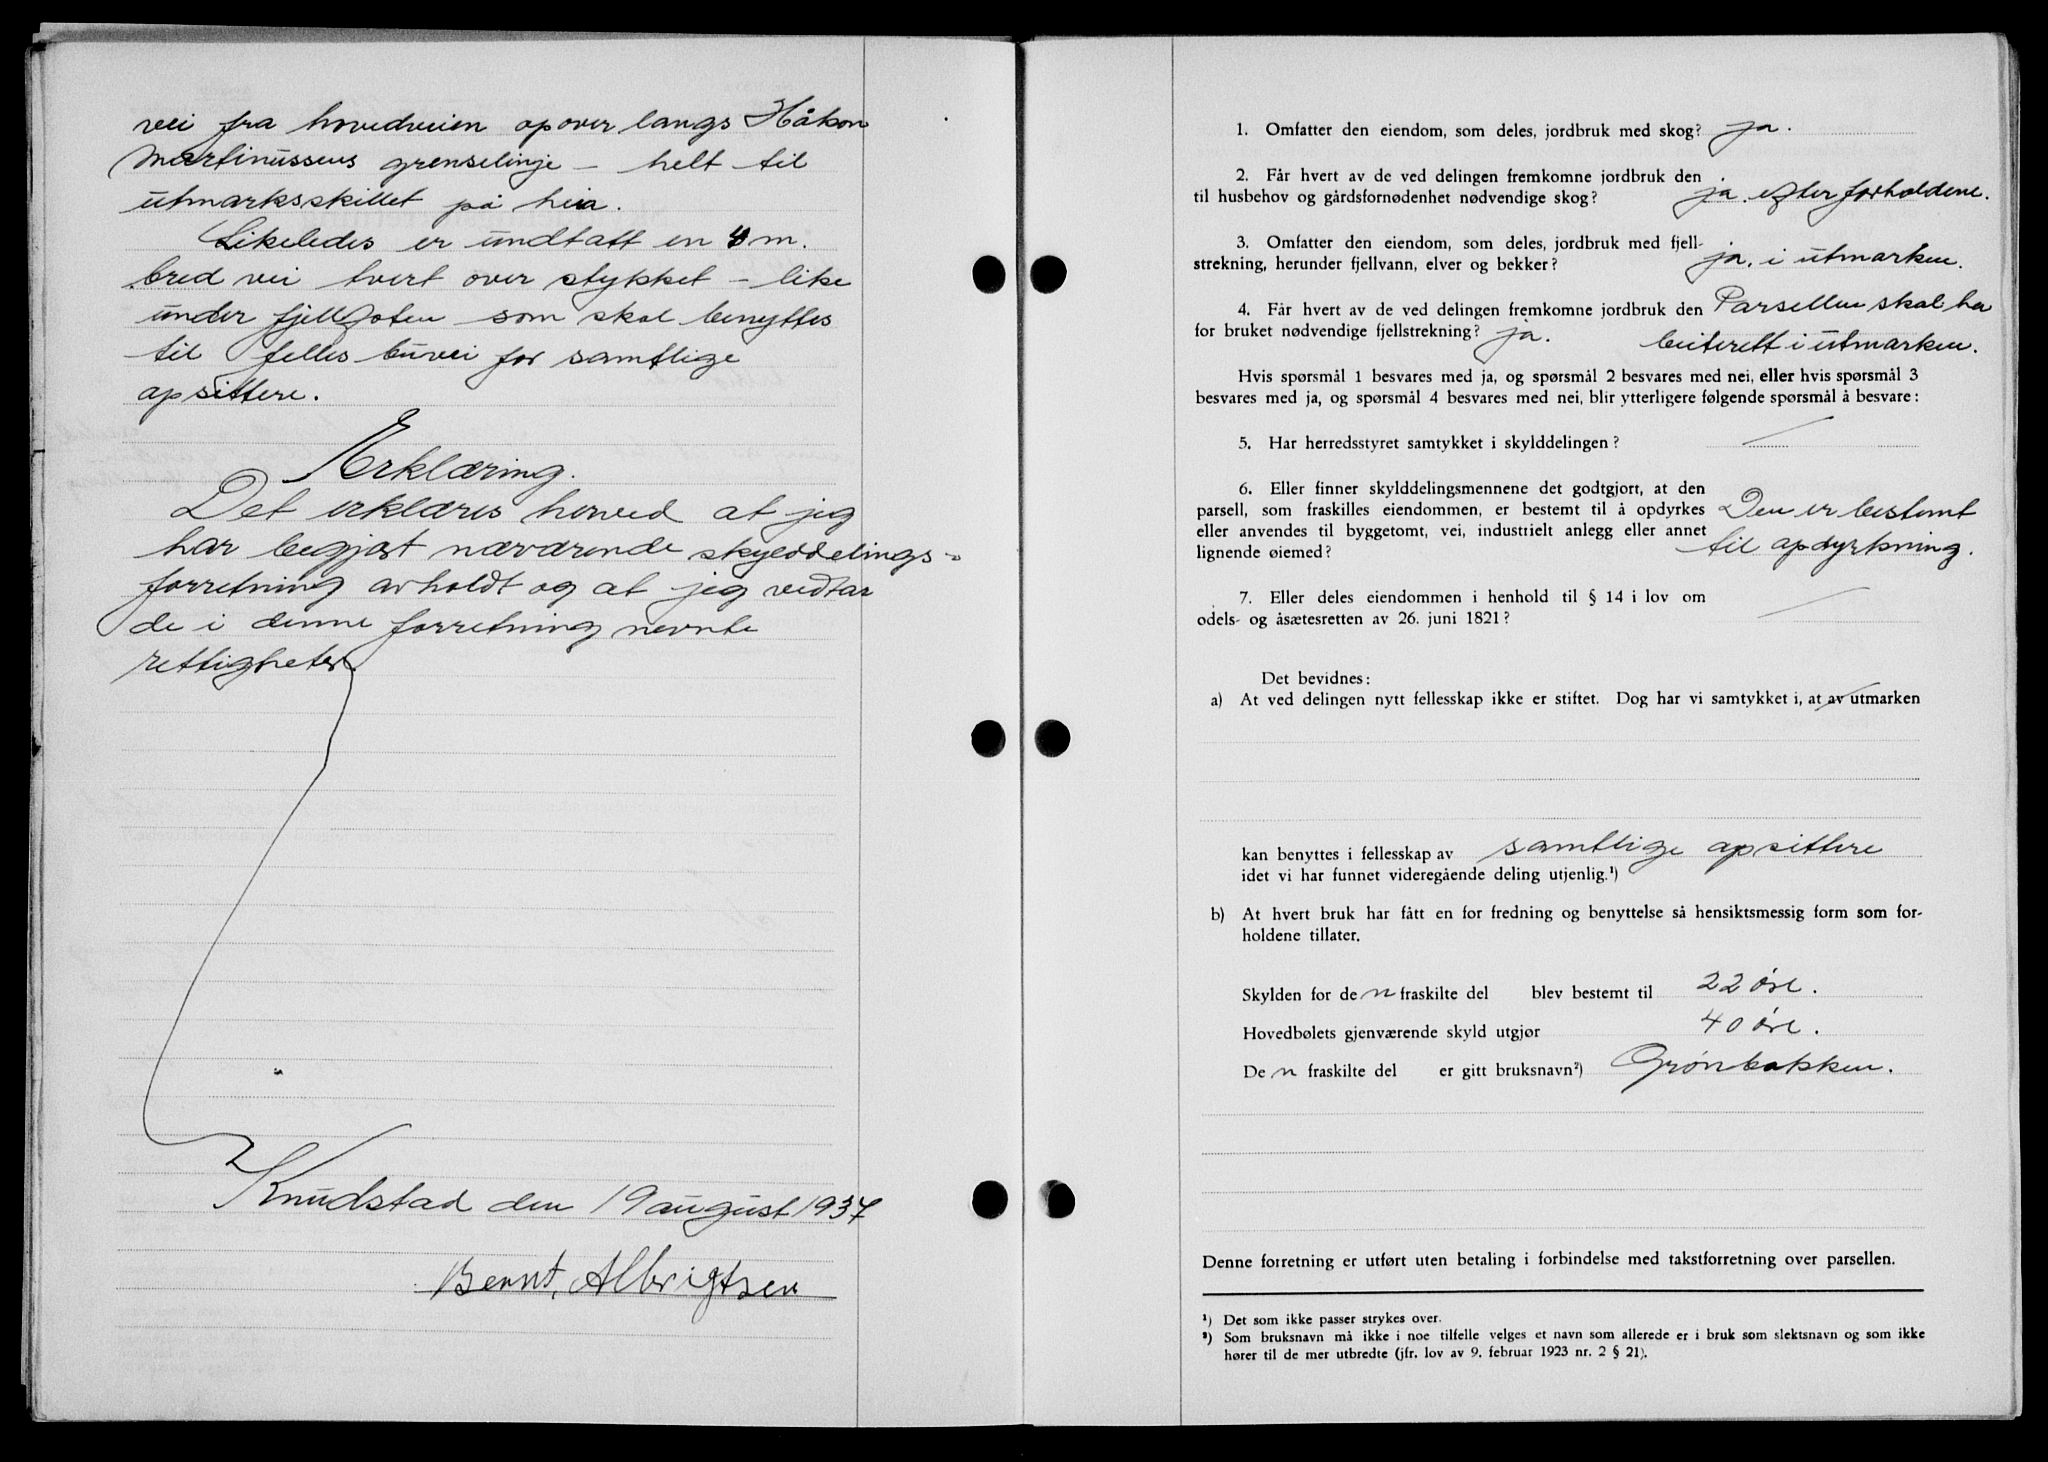 vei fra hovedveien opover langs Håkon
Martinussens grenselinje – helt til
utmarksskillet på heia.
Likeledes er undtatt en 4 m.
bred vei tvert over stykket – like
under fjellfoten som skal benyttes
til felles buvei for samtlige
opsittere.
Erklæring.
Det erklæres herved at jeg
har begjært nærværende skylddelings-
forretning avholdt og at jeg vedtar
de i denne forretning nevnte
rettigheter.
Knudstad den 19 august 1937
Bernt, Albrigtsen
1. Omfatter den eiendom, som deles, jordbruk med skog? ja.
2. Får hvert av de ved delingen fremkomne jordbruk den
til husbehov og gårdsfornødenhet nødvendige skog? ja. efter forholdene.
3. Omfatter den eiendom, som deles, jordbruk med fjell-
strekning, herunder fjellvann, elver og bekker? ja. i utmarken.
4. Får hvert av de ved delingen fremkomne jordbruk den Parsellen skal ha
for bruket nødvendige fjellstrekning? ja. beiterett i utmarken.
Hvis spørsmål 1 besvares med ja, og spørsmål 2 besvares med nei, eller hvis spørsmål 3
besvares med ja, og spørsmål 4 besvares med nei, blir ytterligere følgende spørsmål å besvare:
5. Har herredsstyret samtykket i skylddelingen?
6. Eller finner skylddelingsmennene det godtgjort, at den
parsell, som fraskilles eiendommen, er bestemt til å opdyrkes Den er bestemt
eller anvendes til byggetomt, vei, industrielt anlegg eller annet
lignende øiemed? til opdyrkning.
7. Eller deles eiendommen i henhold til § 14 i lov om
odels- og åsætesretten av 26. juni 1821?
Det bevidnes:
a) At ved delingen nytt fellesskap ikke er stiftet. Dog har vi samtykket i, at av utmarken
kan benyttes i fellesskap av samtlige opsittere
idet vi har funnet videregående deling utjenlig.¹)
b) At hvert bruk har fått en for fredning og benyttelse så hensiktsmessig form som for-
holdene tillater.
Skylden for den fraskilte del blev bestemt til 22 øre.
Hovedbølets gjenværende skyld utgjør 40 øre.
Den fraskilte del er gitt bruksnavn²) Grønbakken.
Denne forretning er utført uten betaling i forbindelse med takstforretning over parsellen.
¹) Det som ikke passer strykes over.
²) Som bruksnavn må ikke i noe tilfelle velges et navn som allerede er i bruk som slektsnavn og som ikke
hører til de mer utbredte (jfr. lov av 9. februar 1923 nr. 2 § 21).